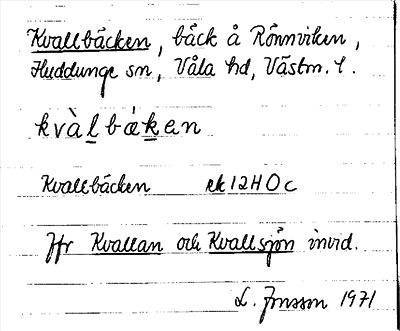 Kvallbäcken, bäck å Rönnviken,
Huddunge sn, Våla hd, Västm. l.
kvàlbǽken
Kvallbäcken ek 12H0c
Jfr Kvallan och Kvallsjön invid.
L. Jonsson 1971